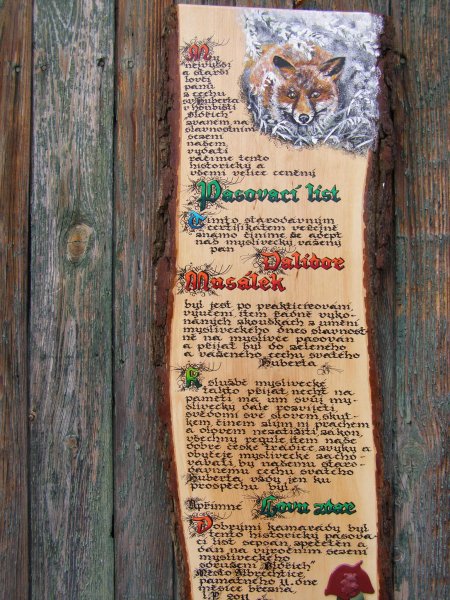 My
nejvyšší
a starší
lovčí
pánů
z cechu
sv. Huberta
v honbišti
zvaném na
slavnostním
sezení
našem
vydati
ráčíme tento
historický a
všemi velice ceněný
Pasovací list
Tímto starodávným
certifikátem veřejně
známo činíme že adept
náš myslivecký vážený
pan
Dalibor
Musálek
byl jest po praktikování,
vyučení, item řádně vyko-
naných zkouškách z umění
mysliveckého dnes slavnost-
ně na myslivce pasován
a přijat byl do zeleného
a váženého cechu svatého
Huberta
K službě myslivecké
takto přijat nechť na
paměti má um svůj my-
slivecký dále rozvíjeti
svědomí své slovem, skut-
kem, činem zlým ni prachem
a olovem nezatížiti, zákon,
všechny regule item naše
dobré české tradice, zvyky a
obyčeje myslivecké zacho-
vávati by našemu staro-
dávnému cechu svatého
Huberta vždy jen ku
prospěchu byl.
Upřímné Lovu zdar
Dobrými kamarády byl
tento historický pasova-
cí list sepsán, zpečetěn a
dán na výročním sezení
mysliveckého
sdružení
Město Albrechtice
památného 11. dne
měsíce března